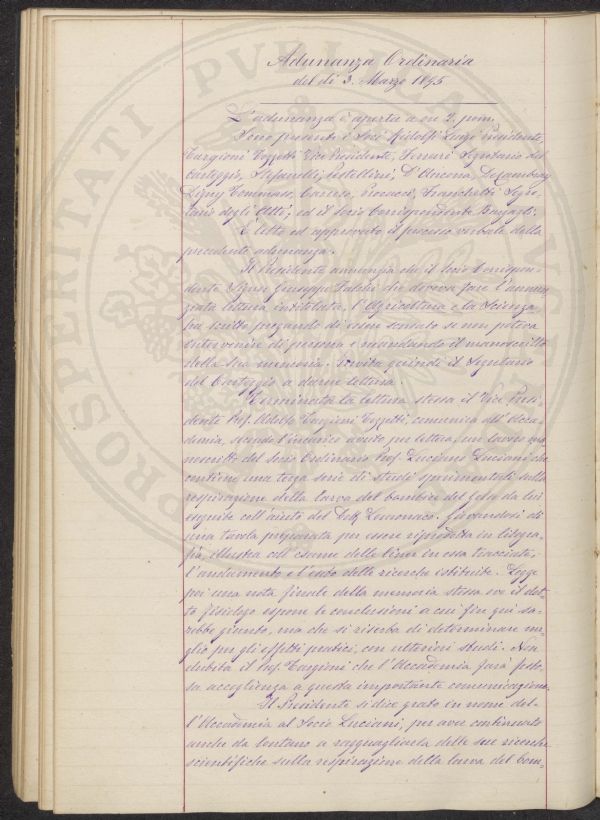 Adunanza Ordinaria
del dì 3. Marzo 1895
L'adunanza è aperta a ore 2. pom.
Sono presenti i Soci Ridolfi Luigi Presidente,
Targioni Tozzetti Vice Presidente, Ferrari Segretario del
Carteggio, Stefanelli, D'Ancona, Decambray
Digny Tommaso, Caruso, Franchetti Segre-
tario degli Atti; ed il Socio Corrispondente
È letto ed approvato il processo verbale della
precedente adunanza.
Il Presidente annunzia che il Socio Corrispon-
dente Signor Giuseppe che doveva fare l'annun-
ziata lettura intitolata, l'Agricoltura e la Scienza
ha scritto pregando di essere scusato se non poteva
intervenire di persona e mandando il manoscritto
della sua memoria. Invita quindi il Segretario
del Carteggio a darne lettura.
Terminata la lettura stessa il Vice Presi-
dente Prof. Adolfo Targioni Tozzetti, comunica all'Acca-
demia, secondo l'incarico avuto per lettera, un lavoro ma-
noscritto del Socio Ordinario Prof. Luciano Luciani che
contiene una terza serie di studi sperimentali sulla
respirazione della larva del bombice del gelso da lui
eseguite coll'aiuto del Dott. Lomonaco. Giovandosi di
una tavola preparata per essere riprodotta in litogra-
fia, illustra coll'esame delle linee in essa tracciate,
l'andamento e l'esito delle ricerche istituite. Legge
poi una nota finale della memoria stessa ove il det-
to fisiologo espone le conclusioni a cui fin qui sa-
rebbe giunto, ma che si riserba di determinare me-
glio per gli effetti pratici, con ulteriori studi. Non
dubita il Prof. Targioni che l'Accademia farà festo-
sa accoglienza a questa importante comunicazione.
Il Presidente si dice grato in nome del-
l'Accademia al Socio Luciani, per aver continuato
anche da lontano a ragguagliarla delle sue ricerche
scientifiche sulla respirazione della larva del bom-
PROSPERITATI PUBLICAE